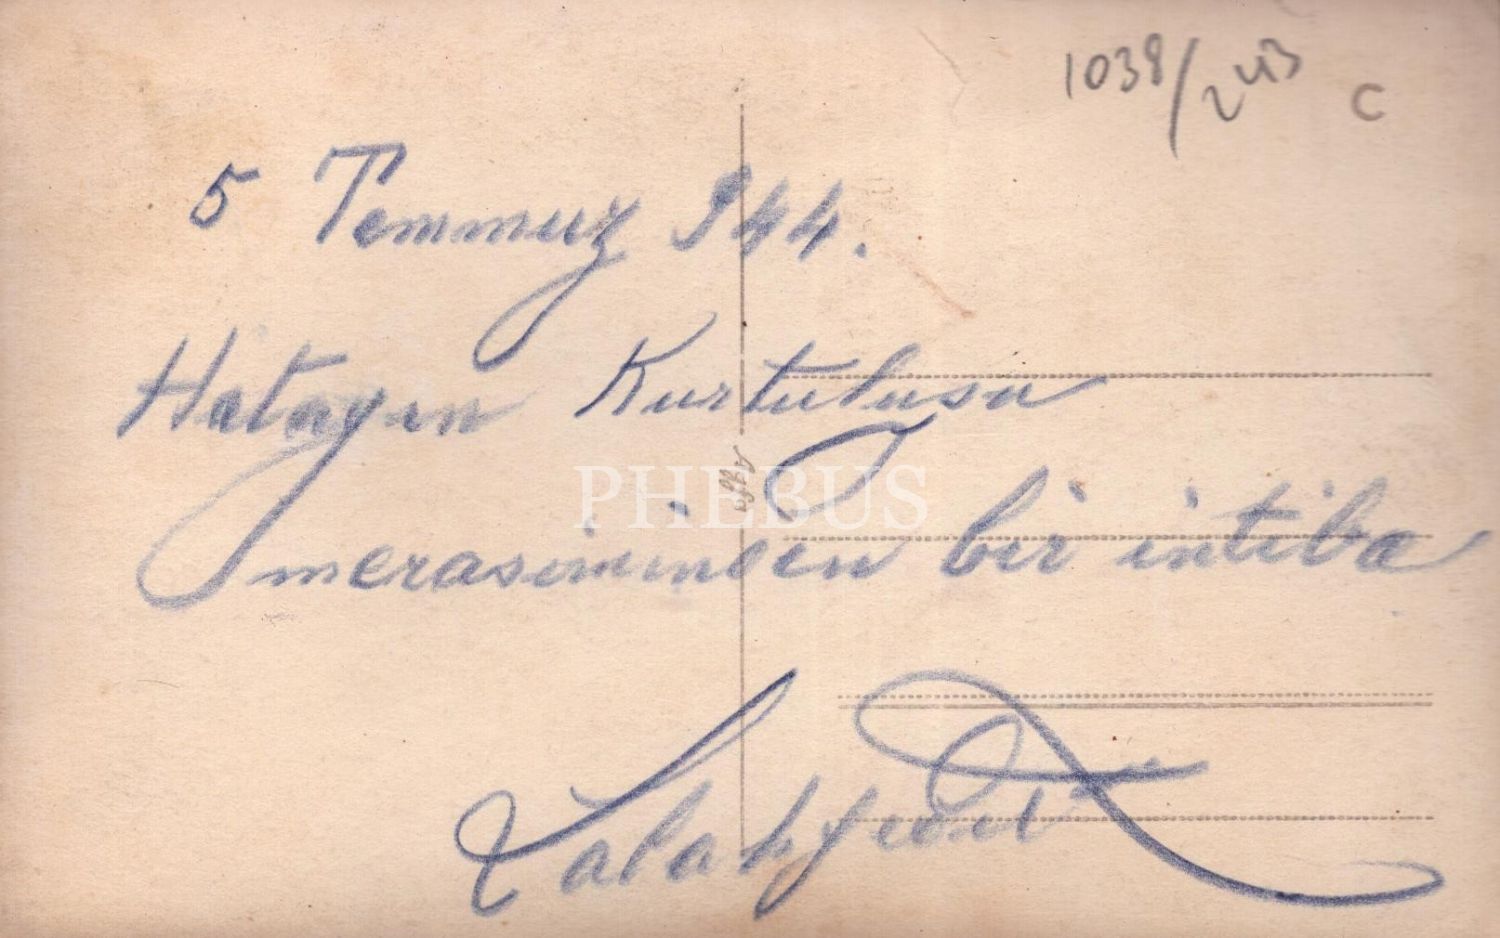 1038/
C
5 Temmuz 944.
Hatayın Kurtuluşu
merasiminden bir intiba
PHEBUS
Agfa